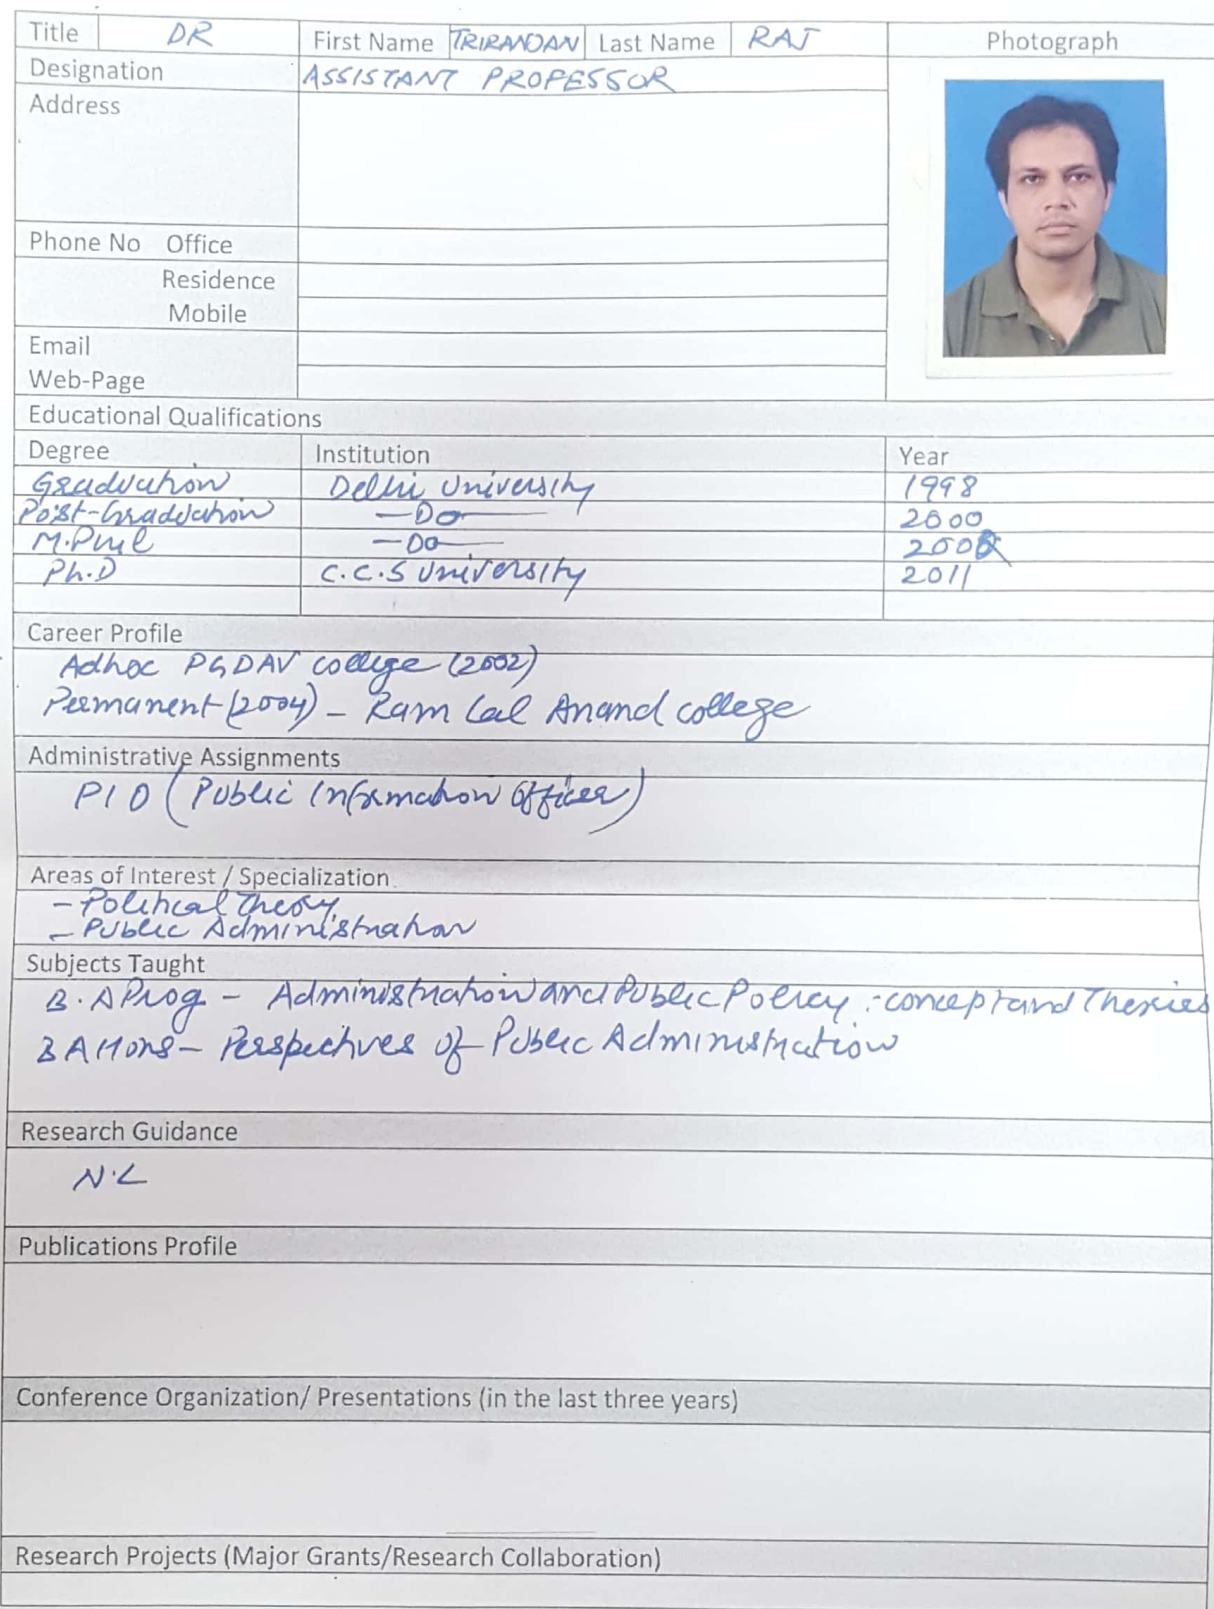 Title DR First Name TRIRANJAN Last Name RAJ Photograph
Designation ASSISTANT PROFESSOR
Address
Phone No Office
Residence
Mobile
Email
Web-Page
Educational Qualifications
Degree Institution Year
Graduation Delhi University 1998
Post-Graduation —Do— 2000
M.Phil —Do—
Ph.D C.C.S University 2011
Career Profile
Adhoc PGDAV college (2002)
Permanent (2004) – Ram Lal Anand college
Administrative Assignments
PIO (Public Information Officer)
Areas of Interest / Specialization
- Political Theory
- Public Administration
Subjects Taught
B.A Prog – Administration and Public Policy : concept and Theries
BA Hons – Perspectives of Public Administration
Research Guidance
N.L
Publications Profile
Conference Organization/ Presentations (in the last three years)
Research Projects (Major Grants/Research Collaboration)